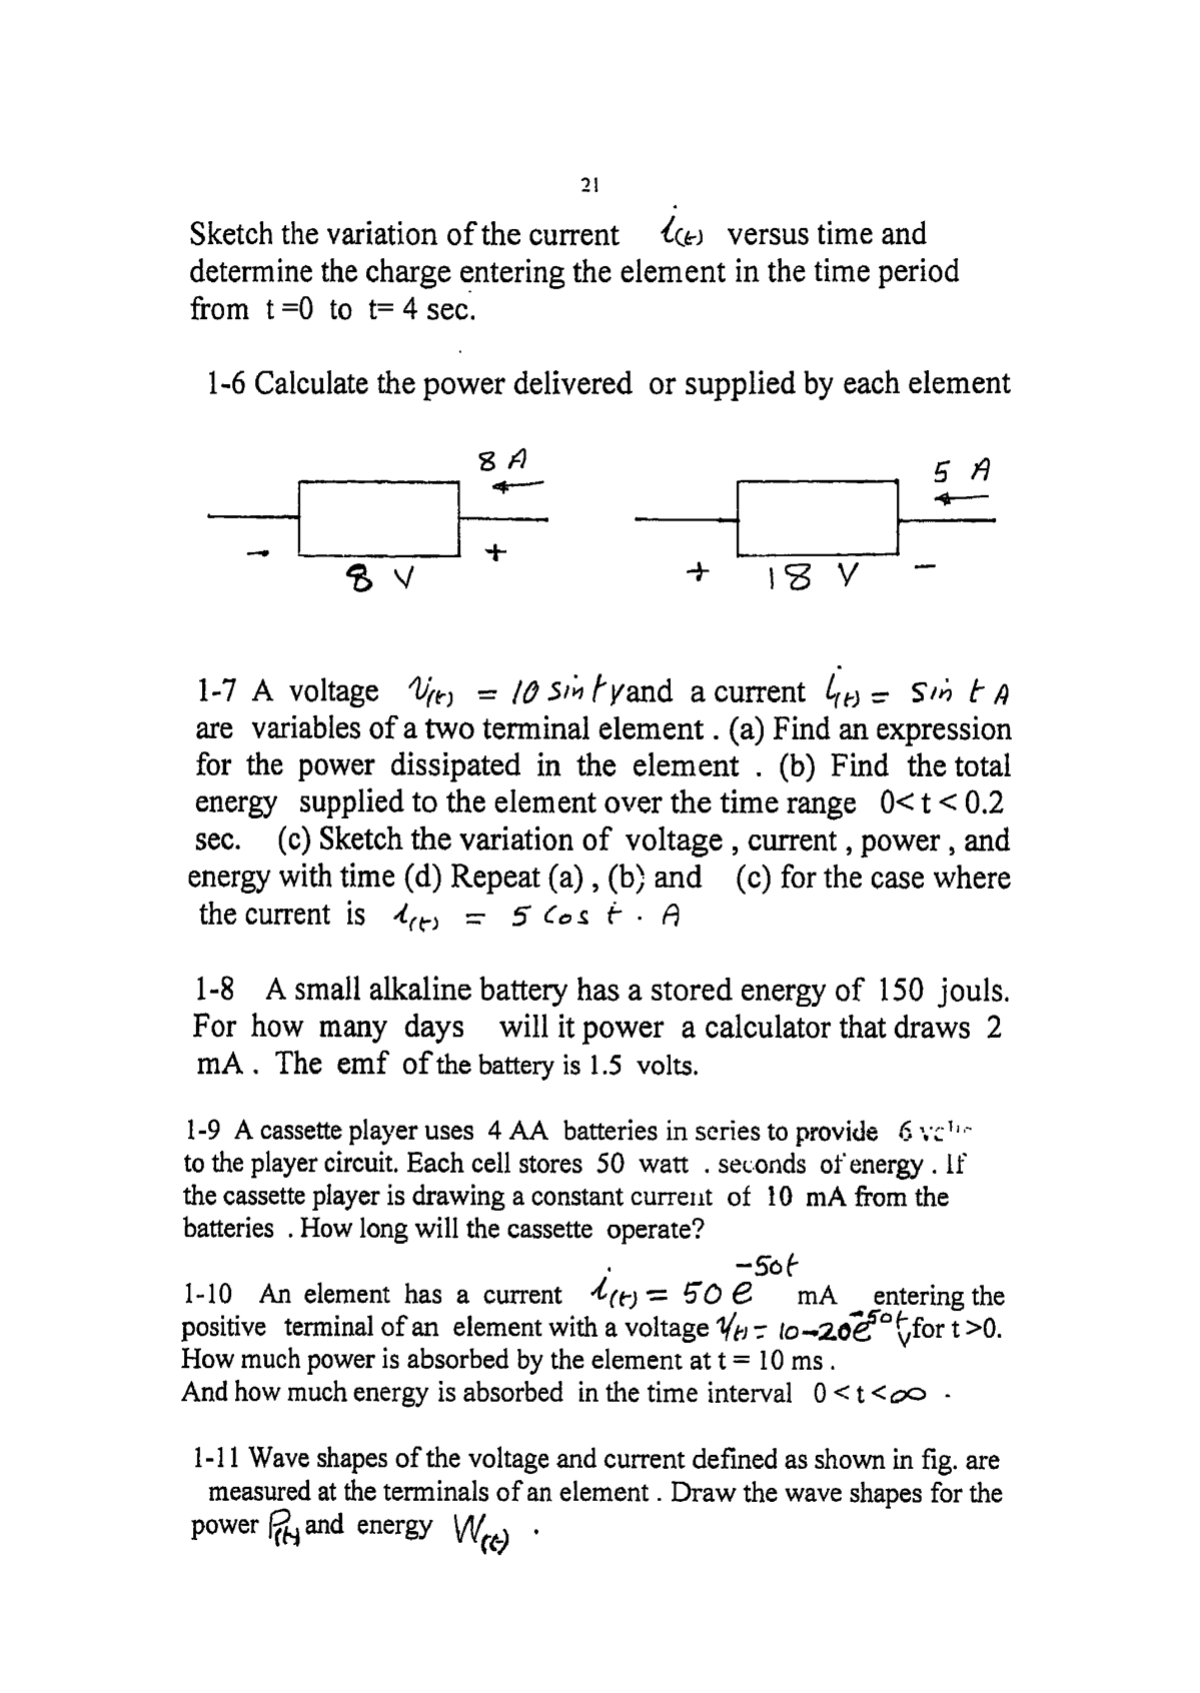 21
Sketch the variation of the current i(t) versus time and
determine the charge entering the element in the time period
from t =0 to t= 4 sec.
1-6 Calculate the power delivered or supplied by each element
8 A
5 A
- +
8 V
+ 18 V -
1-7 A voltage v(t) = 10 sin t v and a current i(t) = sin t A
are variables of a two terminal element . (a) Find an expression
for the power dissipated in the element . (b) Find the total
energy supplied to the element over the time range 0< t < 0.2
sec. (c) Sketch the variation of voltage , current , power , and
energy with time (d) Repeat (a) , (b) and (c) for the case where
the current is i(t) = 5 Cos t . A
1-8 A small alkaline battery has a stored energy of 150 jouls.
For how many days will it power a calculator that draws 2
mA . The emf of the battery is 1.5 volts.
1-9 A cassette player uses 4 AA batteries in series to provide 6 volts
to the player circuit. Each cell stores 50 watt . seconds of energy . If
the cassette player is drawing a constant current of 10 mA from the
batteries . How long will the cassette operate?
1-10 An element has a current i(t) = 50 e^-50t mA entering the
positive terminal of an element with a voltage v(t) = 10-20e^-50t v for t >0.
How much power is absorbed by the element at t = 10 ms .
And how much energy is absorbed in the time interval 0 < t < ∞ .
1-11 Wave shapes of the voltage and current defined as shown in fig. are
measured at the terminals of an element . Draw the wave shapes for the
power P(t) and energy W(t) .